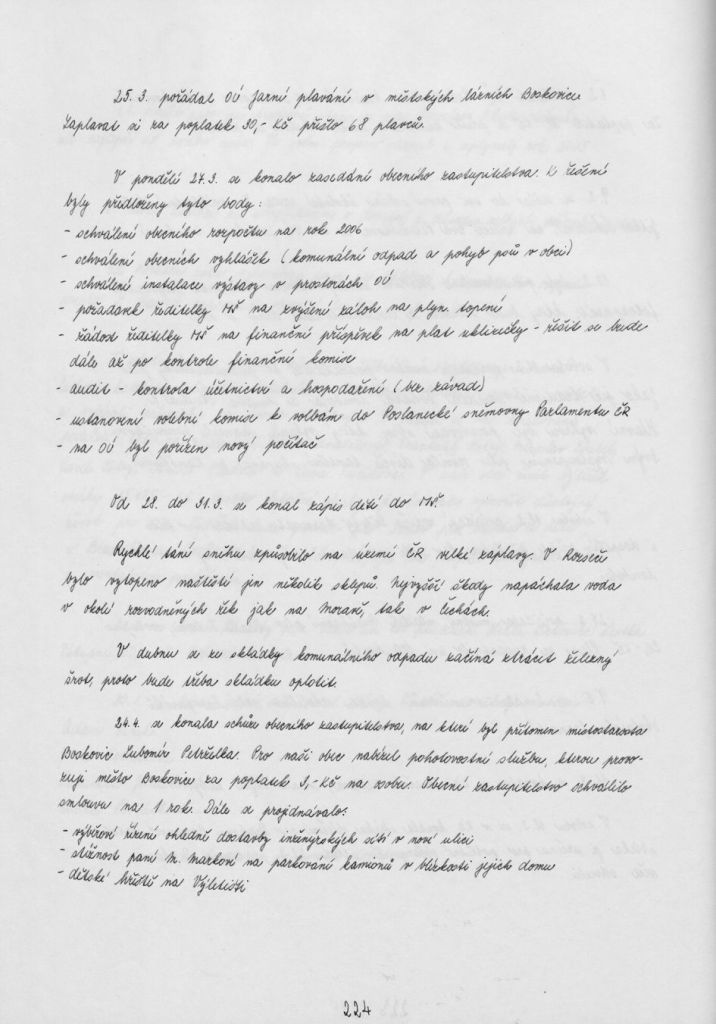 25. 3. pořádal OÚ jarní plavání v městských lázních Boskovice.
Zaplavat si za poplatek 30,- Kč přišlo 68 plavců.
V pondělí 27.3. se konalo zasedání obecního zastupitelstva. K řešení
byly předloženy tyto body:
- schválení obecního rozpočtu na rok 2006
- schválení obecních vyhlášek (komunální odpad a pohyb psů v obci)
- schválení instalace výstavy v prostorách OÚ
- požadavek ředitelky MŠ na zvýšení záloh na plyn. topení
- žádost ředitelky MŠ na finanční příspěvek na plat uklízečky - řešit se bude
dále až po kontrole finanční komise
- audit - kontrola účetnictví a hospodaření (bez závad)
- ustanovení volební komise k volbám do Poslanecké sněmovny Parlamentu ČR
- na OÚ byl pořízen nový počítač
Od 28. do 31.3. se konal zápis dětí do MŠ.
Rychlé tání sněhu způsobilo na území ČR velké záplavy. V Rozseči
bylo vytopeno naštěstí jen několik sklepů. Nejvyšší škody napáchala voda
v okolí rozvodněných řek jak na Moravě, tak v Čechách.
V dubnu se ze skládky komunálního odpadu začíná ztrácet železný
šrot, proto bude třeba skládku oplotit.
24.4. se konala schůze obecního zastupitelstva, na které byl přítomen místostarosta
Boskovic Lubomír Petrželka. Pro naši obec nabízel pohotovostní službu, kterou provo-
zují město Boskovice za poplatek 3,- Kč na osobu. Obecní zastupitelstvo schválilo
smlouvu na 1 rok. Dále se projednávalo:
- výběrové řízení ohledně dostavby inženýrských sítí v nové ulici
- stížnost paní M. Markové na parkování kamionů v blízkosti jejich domu
- dětské hřiště na Výletišti
224